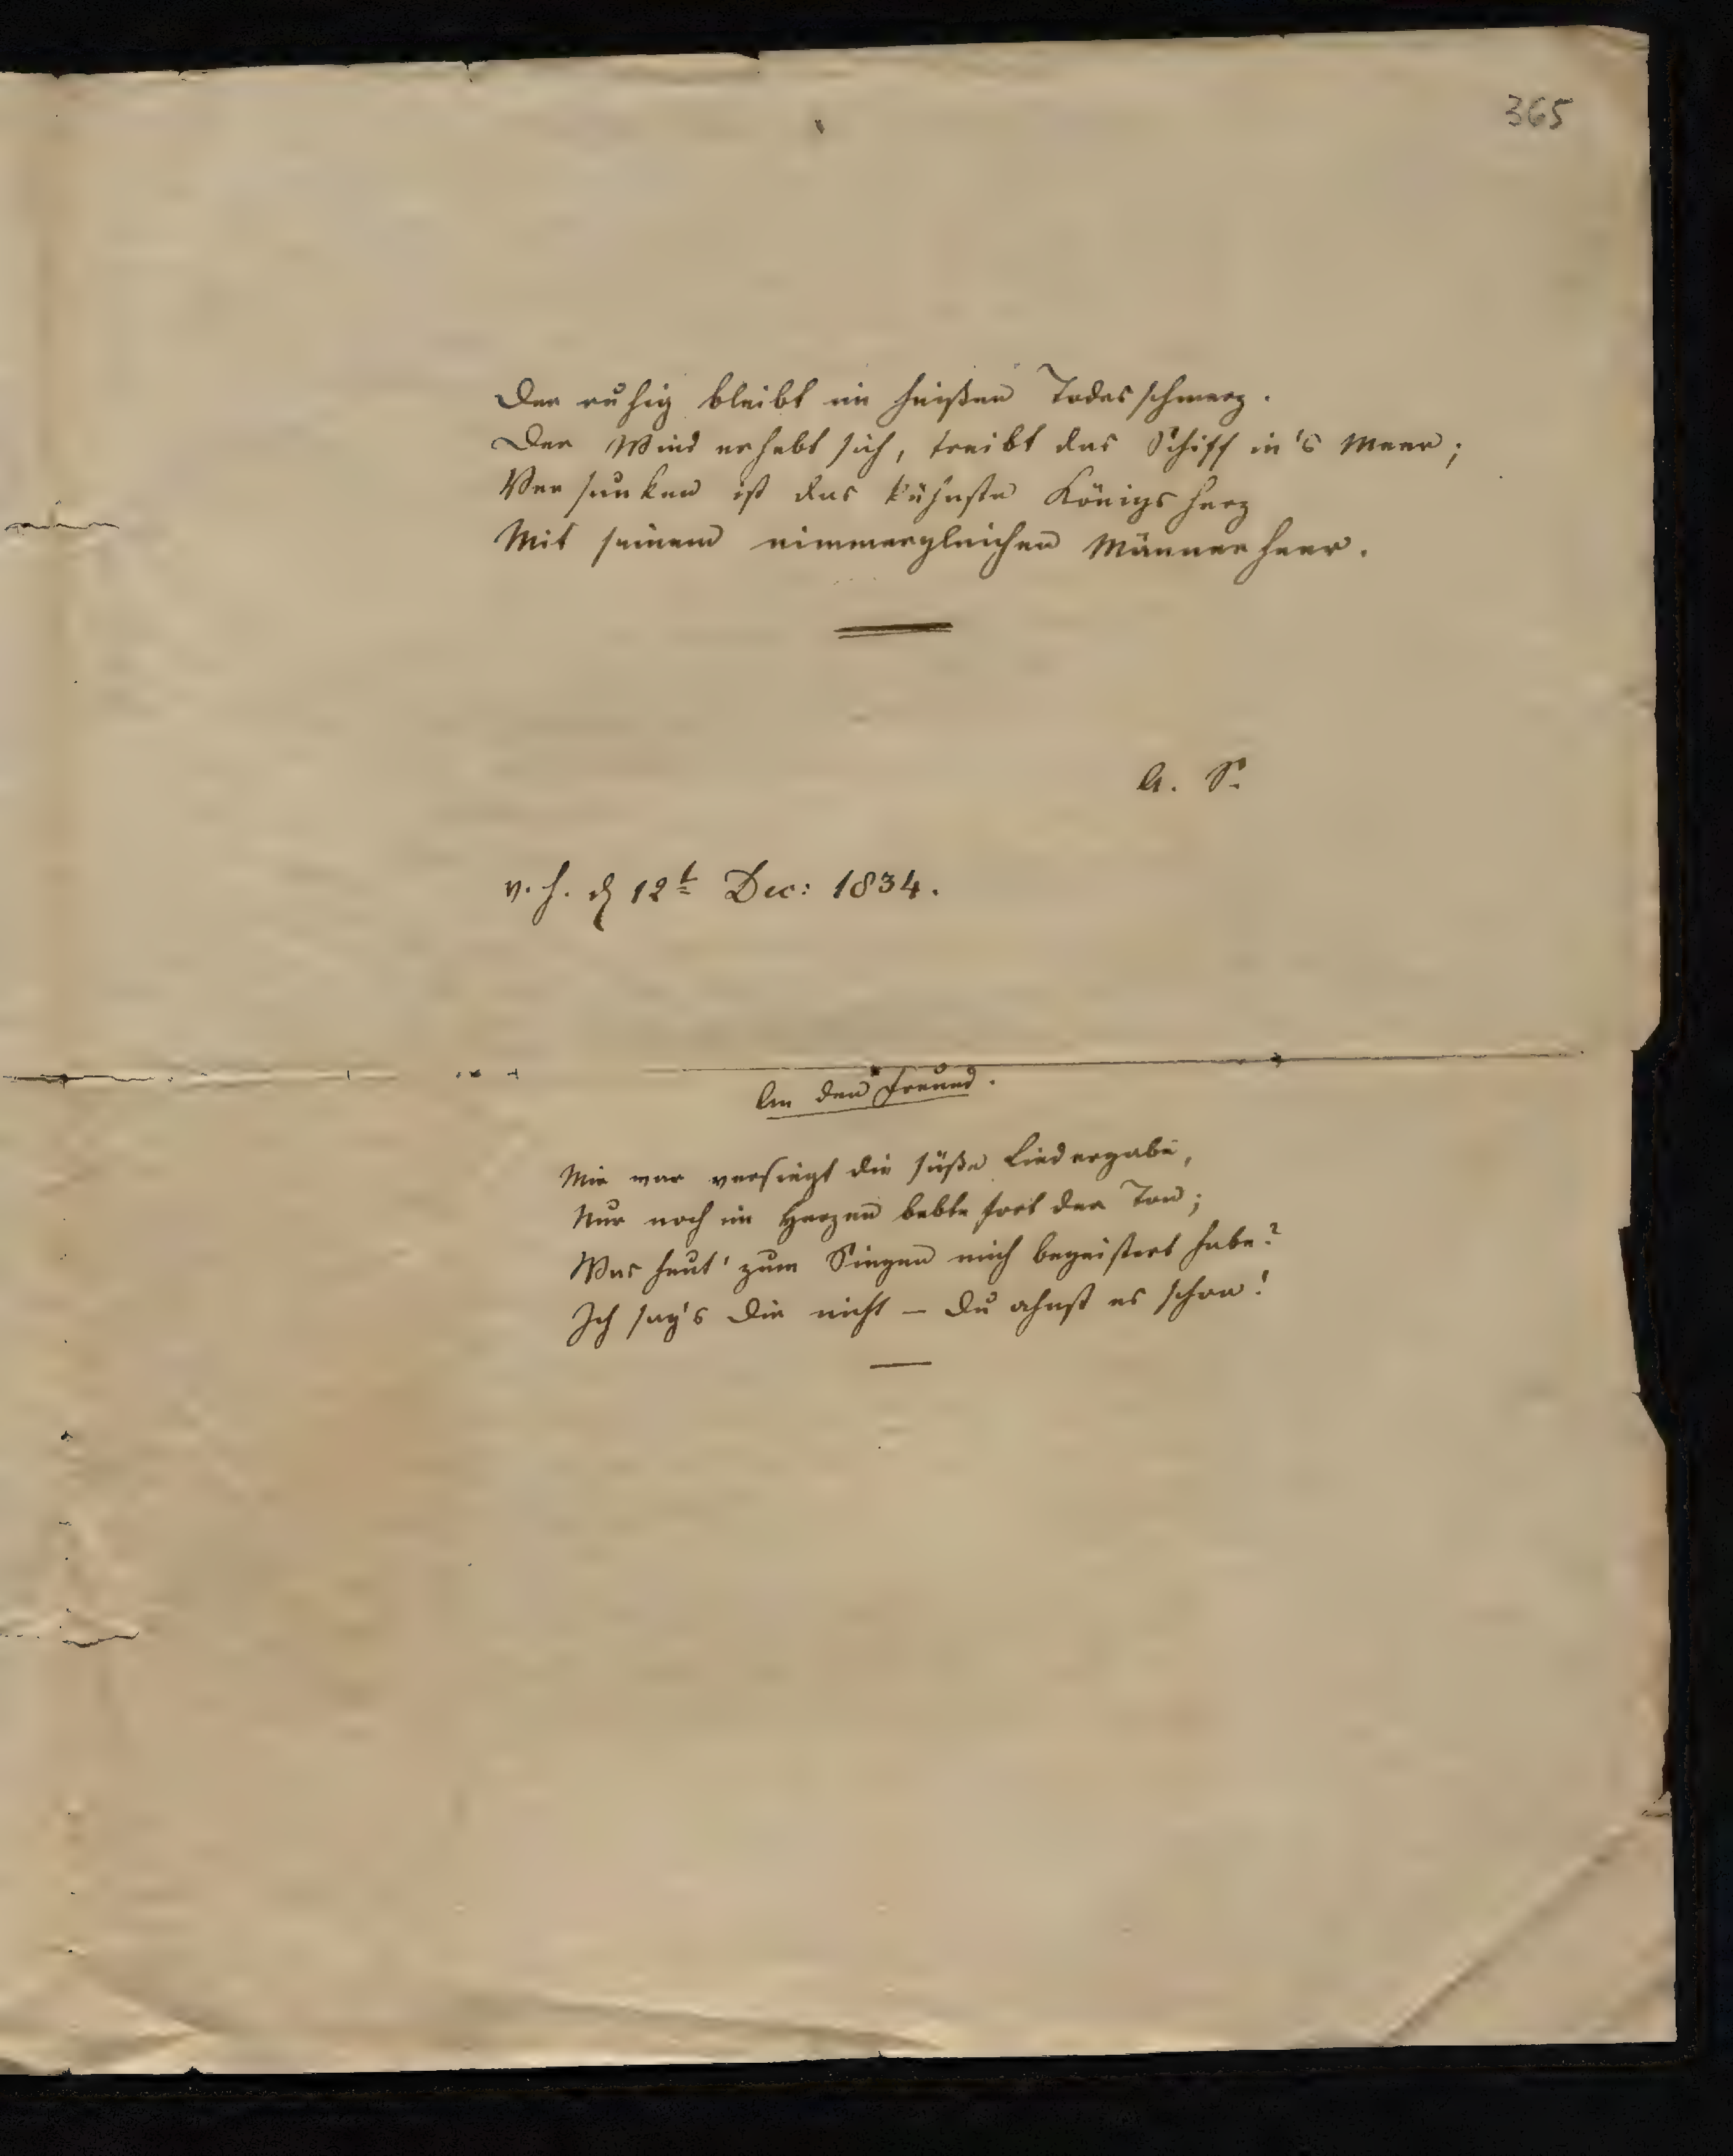 365
Der ruhig bleibt im heißen Todesschmerz.
Der Wind erhebt sich, treibt das Schiff in's Meer;
Versunken ist das kühnste Königsherz
Mit seinem nimmergleichen Männerheer.
A. S.
v. H. d 12t Dec: 1834.
An den Freund.
Mir war versiegt die süße Liedergabe,
Nur noch im Herzen bebte fort der Ton;
Was heut' zum Singen mich begeistert habe?
Ich sag's Dir nicht – Du ahnst es schon!